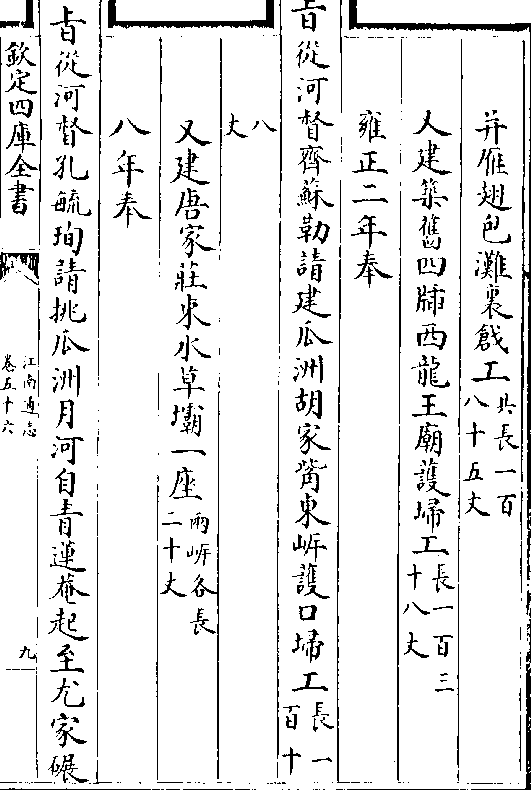 并雁翅包灘裹戧工共長一百八十五丈
又建築舊四牐西龍王廟護埽工長一百三十八丈
雍正二年奉
旨從河督齊蘇勒請建瓜洲胡家觜東岍護口埽工長一百十
八丈
又建唐家莊束水草壩一座兩岍各長二十丈
八年奉
旨從河督孔毓珣請挑瓜洲月河自青蓮菴起至尤家碾
欽定四庫全書
江南通志
卷五十六
九